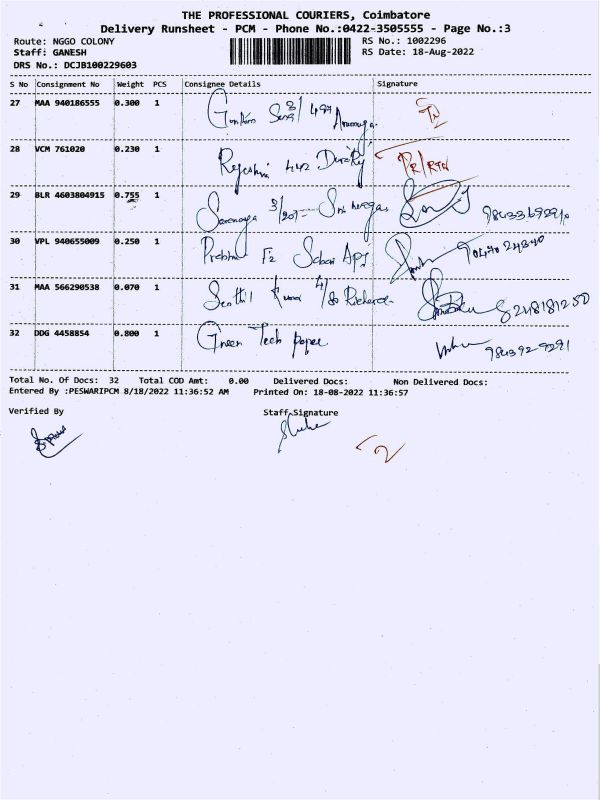 THE PROFESSIONAL COURIERS, Coimbatore
Delivery Runsheet - PCM - Phone No.:0422-3505555 - Page No.:3
Route: NGGO COLONY RS No.: 1002296
Staff: GANESH RS Date: 18-Aug-2022
DRS No.: DCJB100229603
S No Consignment No Weight PCS Consignee Details Signature
27 MAA 940186555 0.300 1
28 VCM 761020 0.230 1 Rajeshri 442
29 BLR 4603804915 0.755 1 3/207
30 VPL 940655009 0.250 1 Prabhu F2 Sabari Apt
31 MAA 566290538 0.070 1 Senthil Kumar 4/80 8248181250
32 DDG 4458854 0.800 1 Green Tech paper 9843929291
Total No. Of Docs: 32 Total COD Amt: 0.00 Delivered Docs: Non Delivered Docs:
Entered By :PESWARIPCM 8/18/2022 11:36:52 AM Printed On: 18-08-2022 11:36:57
Verified By Staff Signature
2